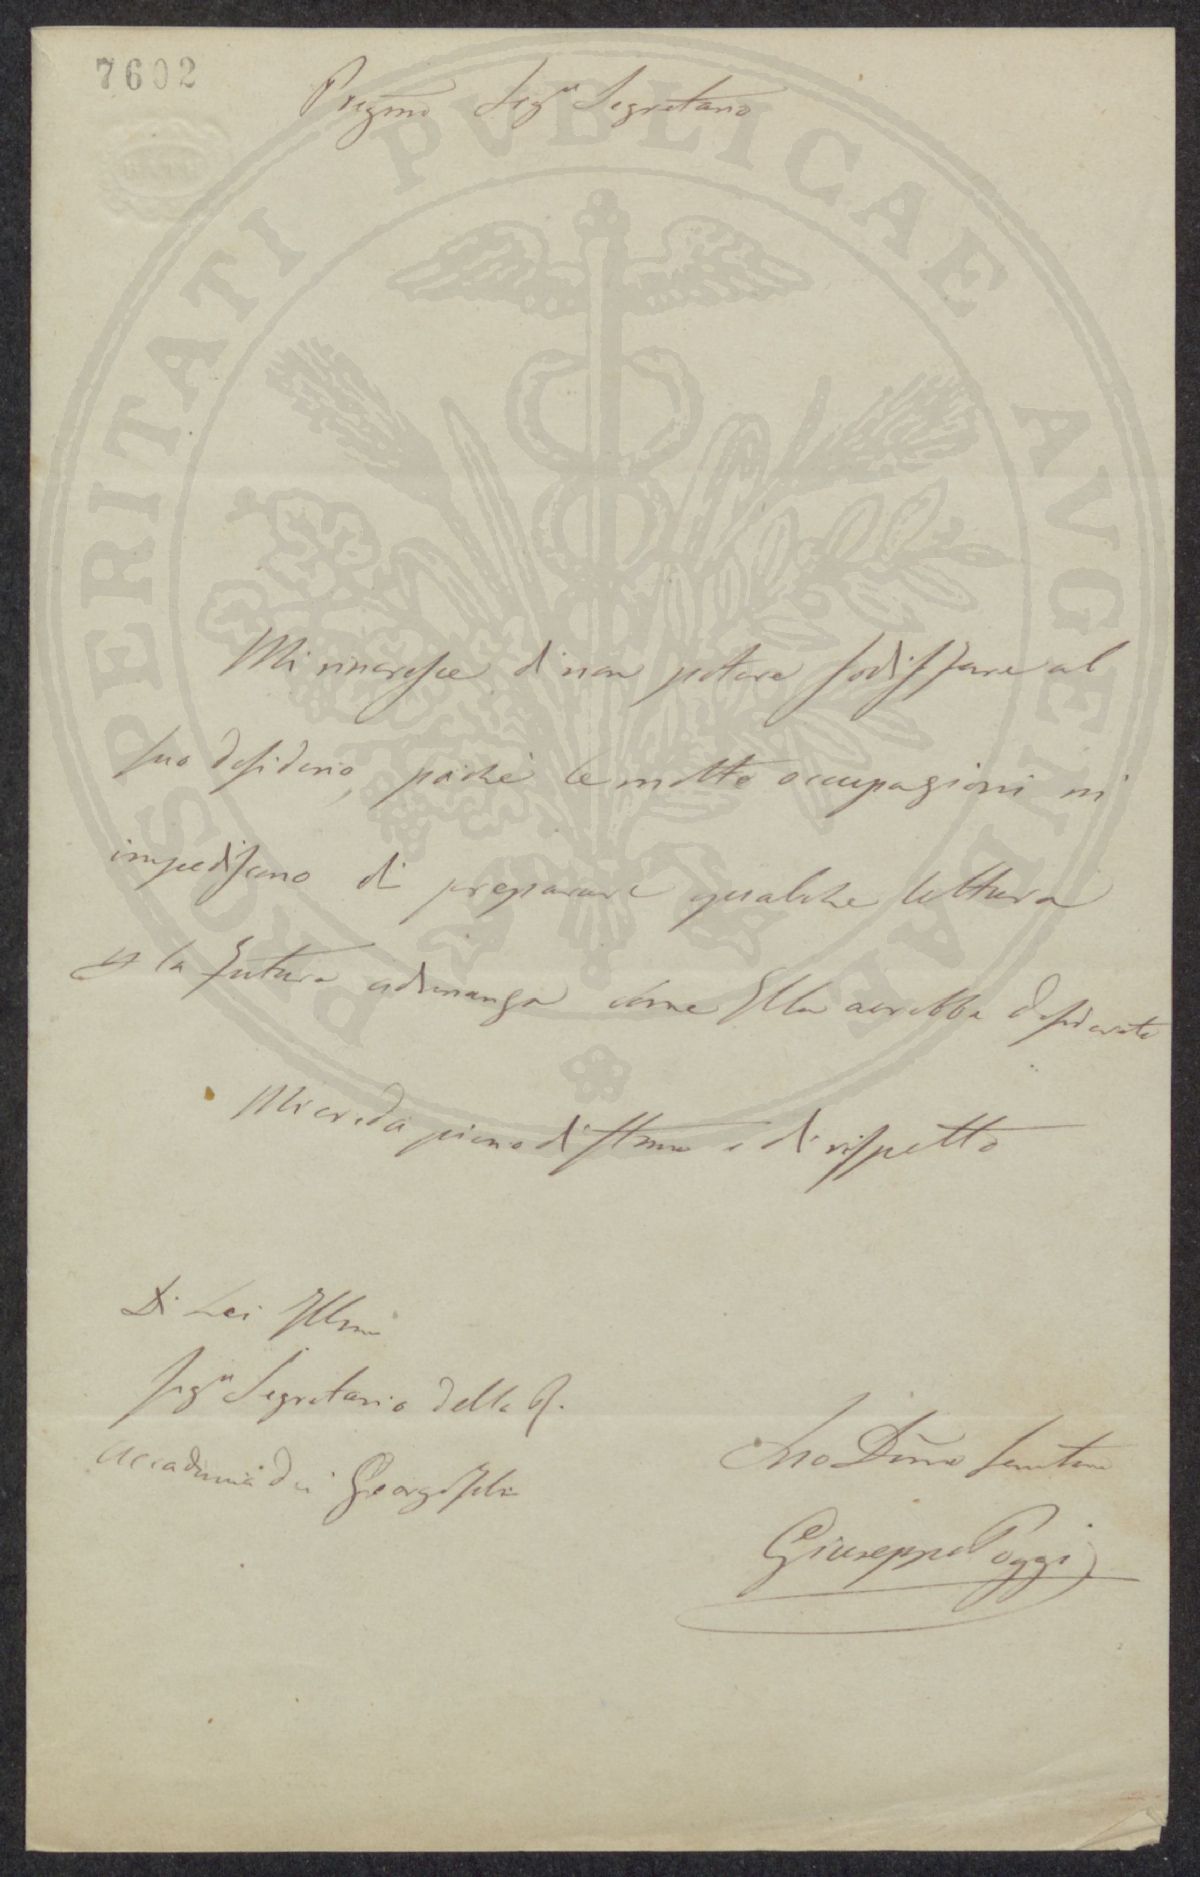 7602
Pregmo Sigr Segretario
PROSPERITATI PVBLICAE AVGENDAE
Mi rincresce di non potere sodisfare al
suo desiderio, poichè le molte occupazioni mi
impediscono di preparare qualche lettura
la futura adunanza come Ella avrebbe desiderato
Mi creda pieno di stima e di rispetto
Di Lei Illmo
Sigr Segretario della R.
Accademia dei Georgofili
Suo Dmo
Giuseppe Poggi